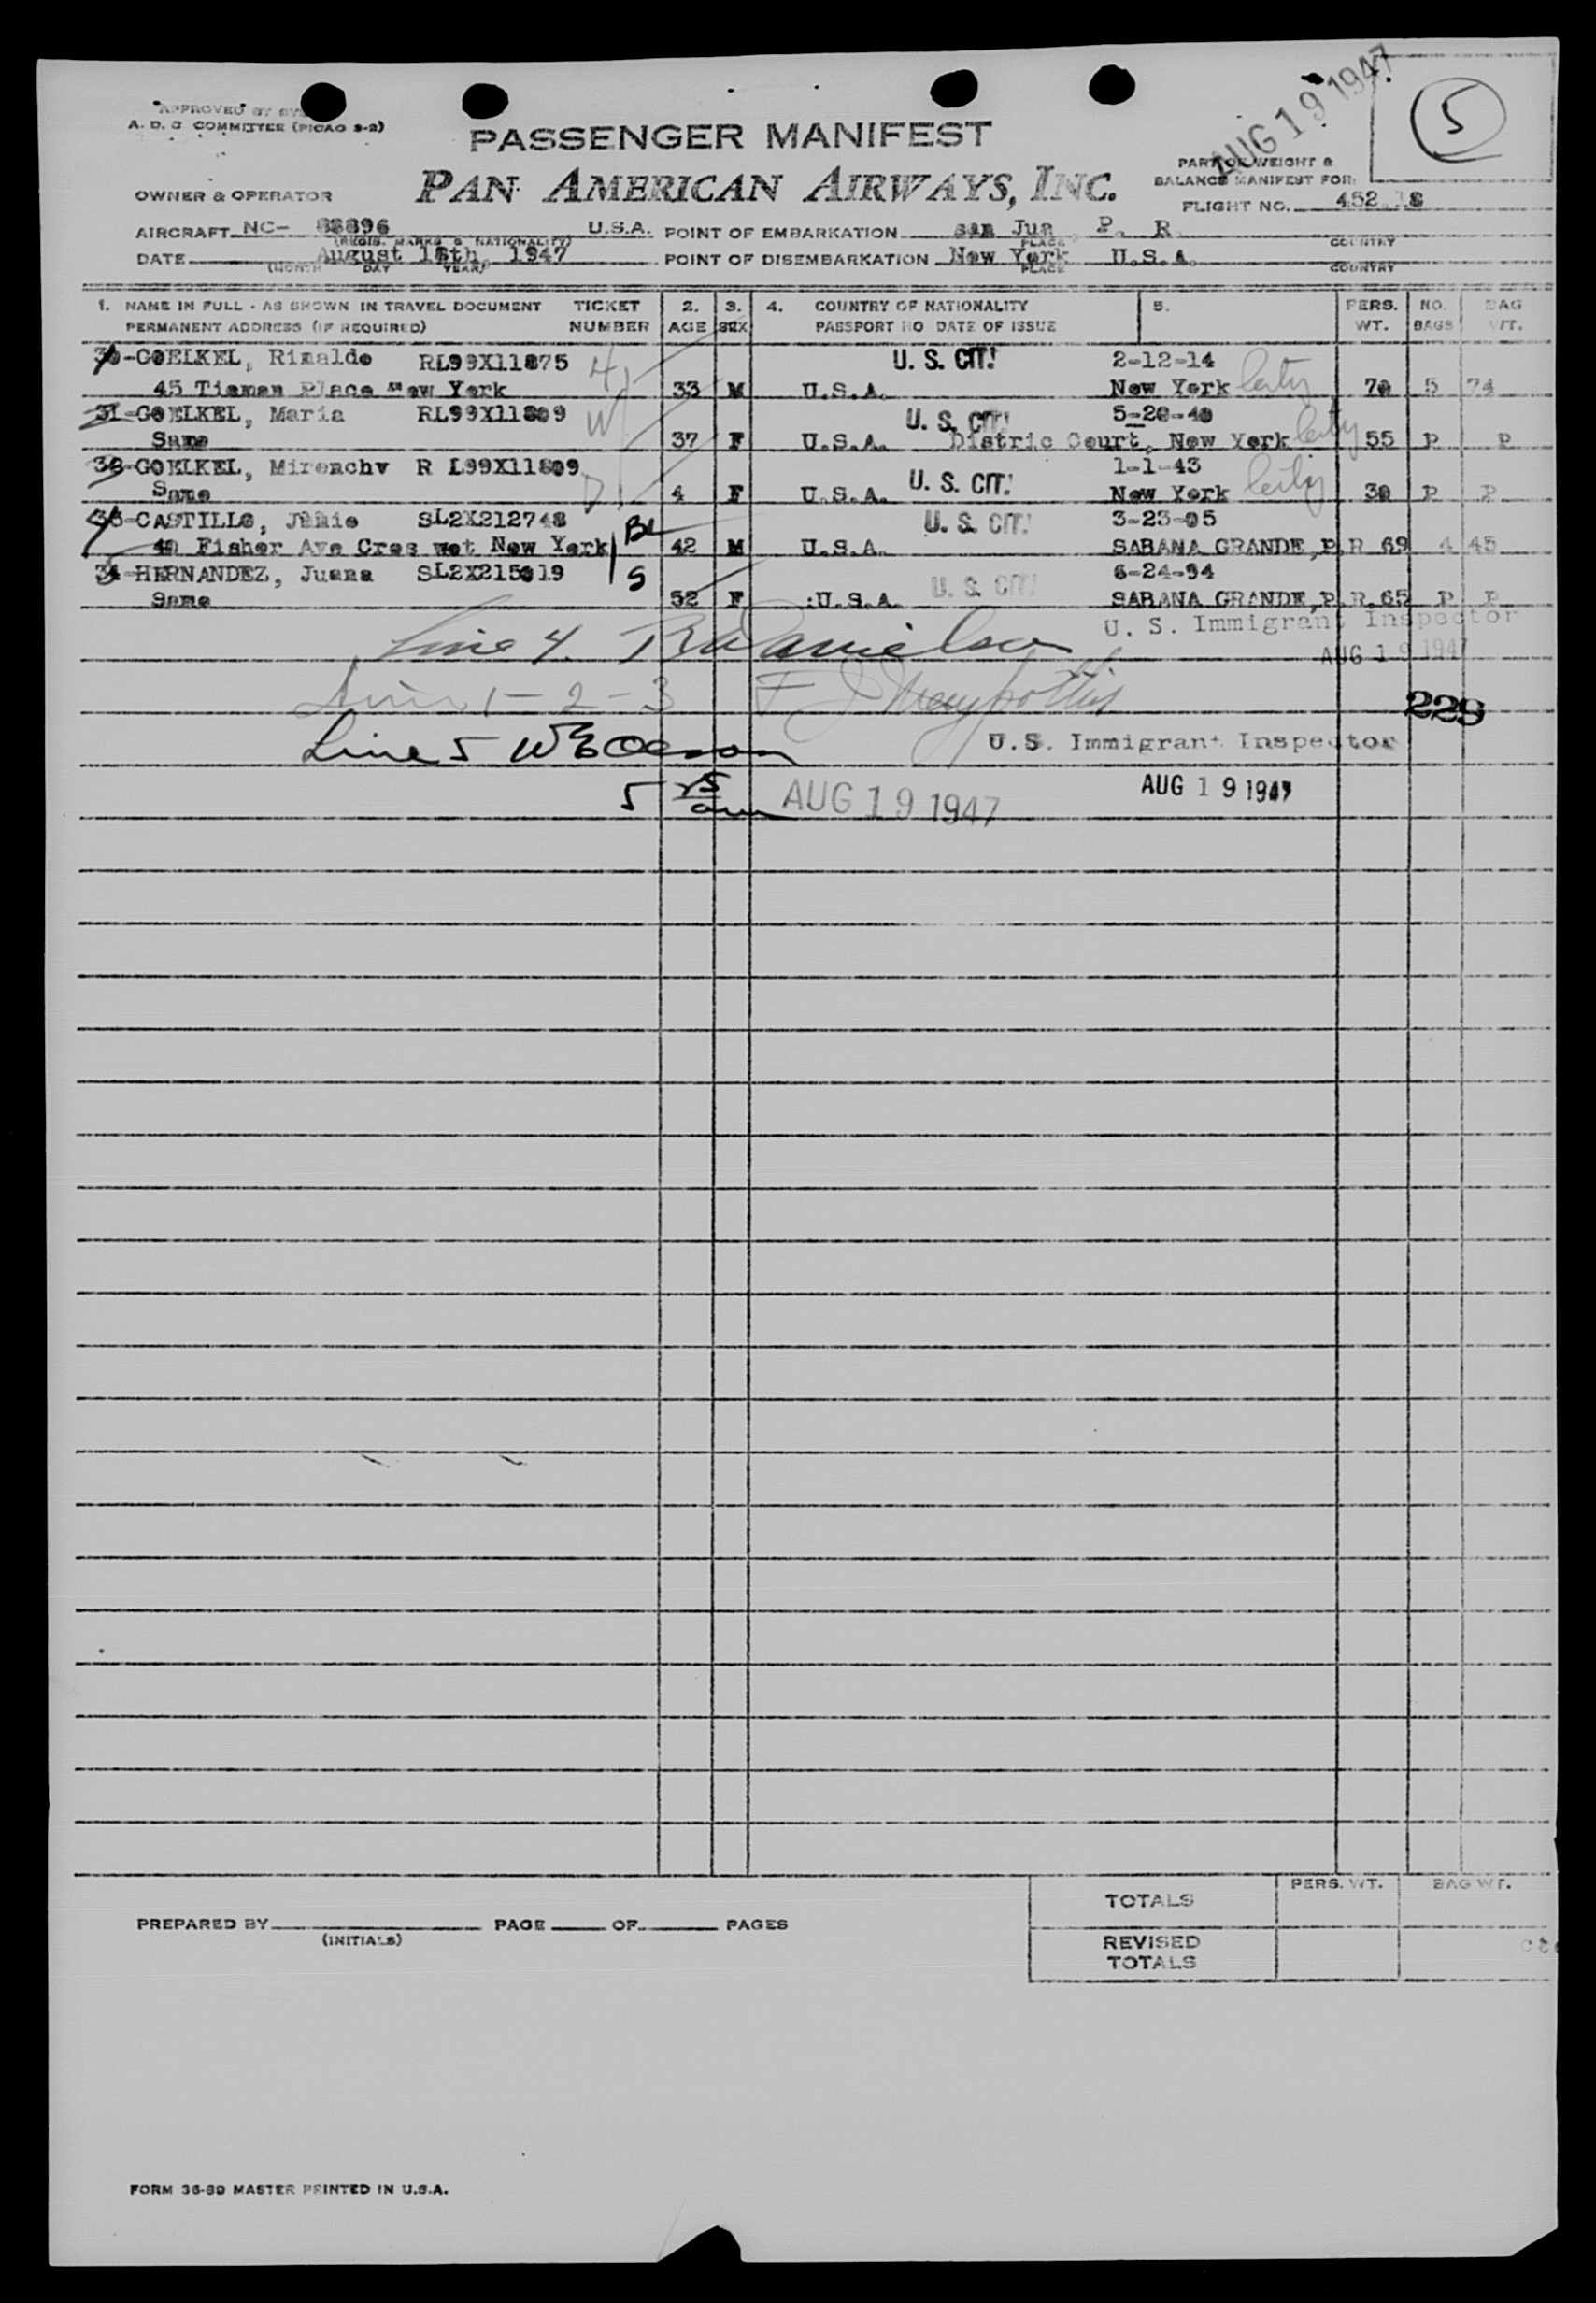 APPROVED BY
A. D. C COMMITTEE (PICAO 8-2)
AUG 19 1947
5
PASSENGER MANIFEST
PAN AMERICAN AIRWAYS, INC.
PART OF WEIGHT &
BALANCE MANIFEST FOR:
OWNER & OPERATOR
FLIGHT NO. 452 18
AIRCRAFT NC- 88896 U.S.A. POINT OF EMBARKATION San Jua P. R
(REGIS. MARKS & NATIONALITY) PLACE COUNTRY
DATE August 18th, 1947 POINT OF DISEMBARKATION New York U.S.A.
(MONTH DAY YEAR) PLACE COUNTRY
1. NAME IN FULL - AS SHOWN IN TRAVEL DOCUMENT TICKET 2. 3. 4. COUNTRY OF NATIONALITY 5. PERS. NO. BAG
PERMANENT ADDRESS (IF REQUIRED) NUMBER AGE SEX PASSPORT NO DATE OF ISSUE WT. BAGS WT.
30-GOELKEL, Rinaldo RL99X11875 H U. S. CIT! 2-12-14
45 Tieman Place New York 33 M U.S.A. New York City 70 5 74
31-GOELKEL, Maria RL99X11809 W U. S. CIT! 5-20-40
Same 37 F U.S.A. Distric Court, New York City 55 P P
GOELKEL, Mirenchv R L99X11809 D U. S. CIT! 1-1-43
Same 4 F U.S.A. New York City 30 P P
CASTILLO, SL2X212748 BL U. S. CIT! 3-23-05
40 Fisher Ave Cres wet New York 42 M U.S.A. SABANA GRANDE, P.R 69 4 45
34-HERNANDEZ, Juana SL2X215019 S U. S. CIT! 6-24-94
Same 52 F U.S.A SABANA GRANDE, P.R. 65 P P
Line 4. U. S. Immigrant Inspector
AUG 19 1947
Lines 1-2-3 F J
229
Line 5 U.S. Immigrant Inspector
5 15 am AUG 19 1947 AUG 19 1947
PERS. WT. BAG WT.
TOTALS
PREPARED BY PAGE OF PAGES
(INITIALS)
REVISED
TOTALS
FORM 36-89 MASTER PRINTED IN U.S.A.